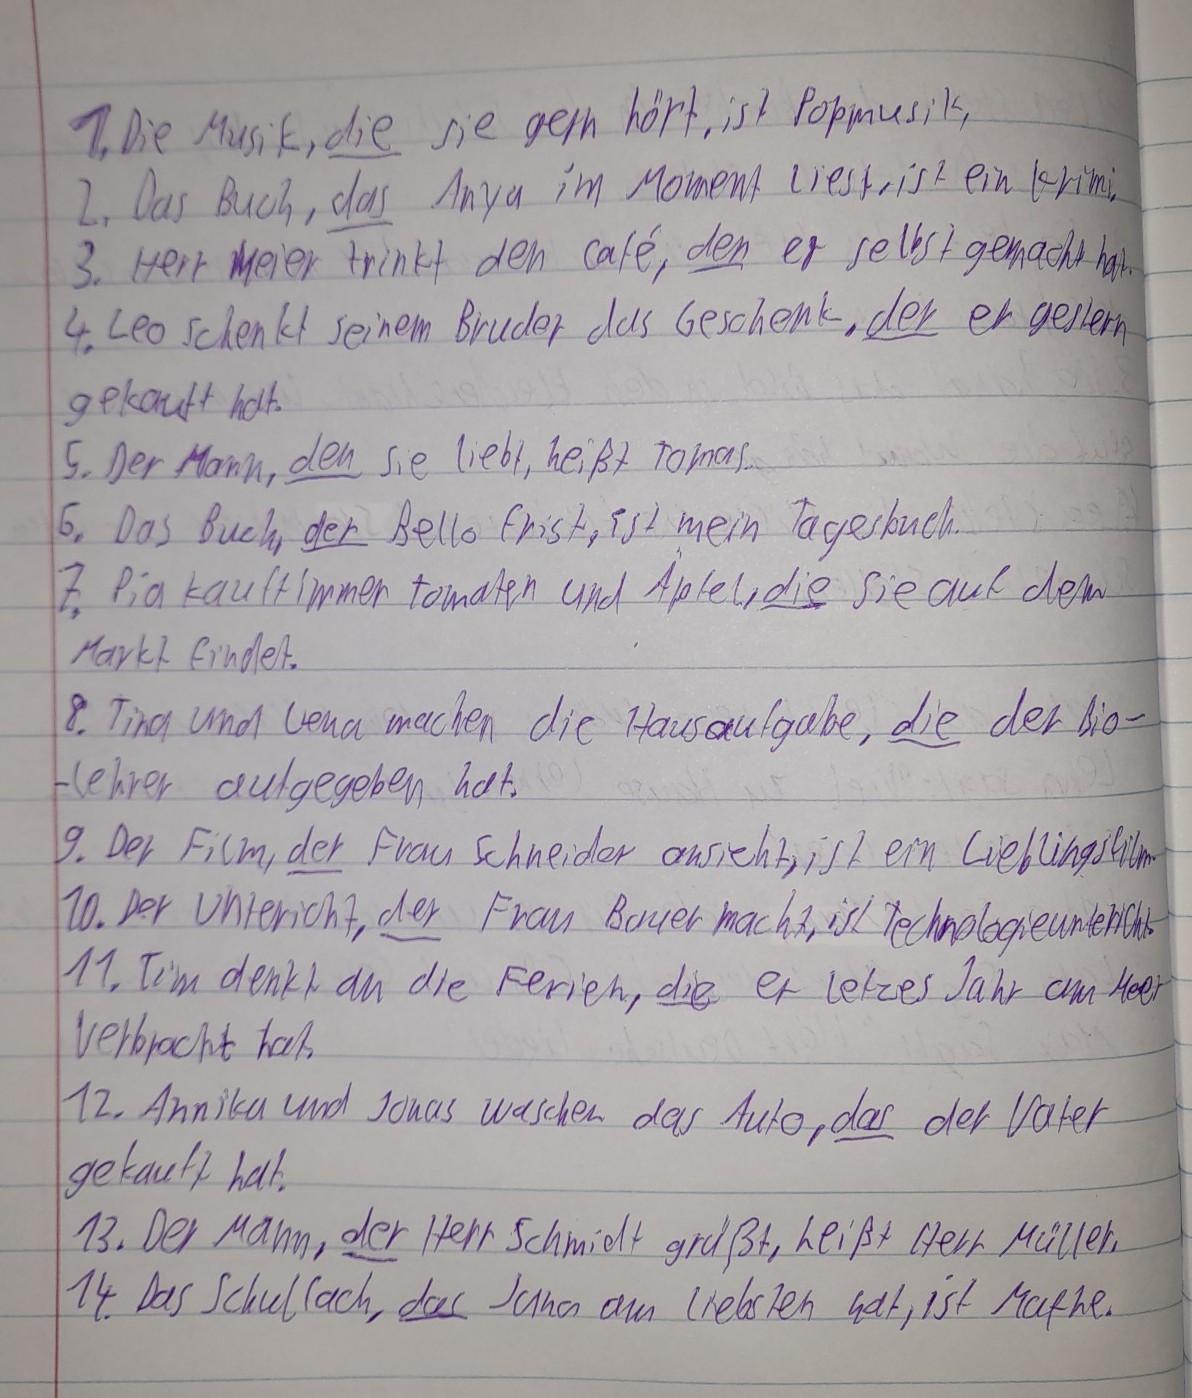 1. Die Musik, die sie gern hört, ist Popmusik,
2. Das Buch, das Anya im Moment liest, ist ein Krimi.
3. Herr Meier trinkt den Café, den er selbst gemacht hat.
4. Leo schenkt seinem Bruder das Geschenk, der er gestern
gekauft hat.
5. Der Mann, den sie liebt, heißt Tomas.
6. Das Buch, der Bello frist, ist mein Tagesbuch.
7. Pia kauft immer tomaten und Äpfel, die sie auf dem
Markt findet.
8. Tina und Lena machen die Hausaufgabe, die der Bio-
-lehrer aufgegeben hat.
9. Der Film, der Frau Schneider ansieht, ist ein Lieblingsfilm.
10. Der Untericht, der Frau Bauer macht, ist Technologieunterricht.
11. Tim denkt an die Ferien, die er letzes Jahr am Meer
verbracht hat.
12. Annika und Jonas waschen das Auto, das der Vater
gekauft hat.
13. Der Mann, der Herr Schmidt grüßt, heißt Herr Müller.
14. Das Schulfach, das Jana am liebsten hat, ist Mathe.